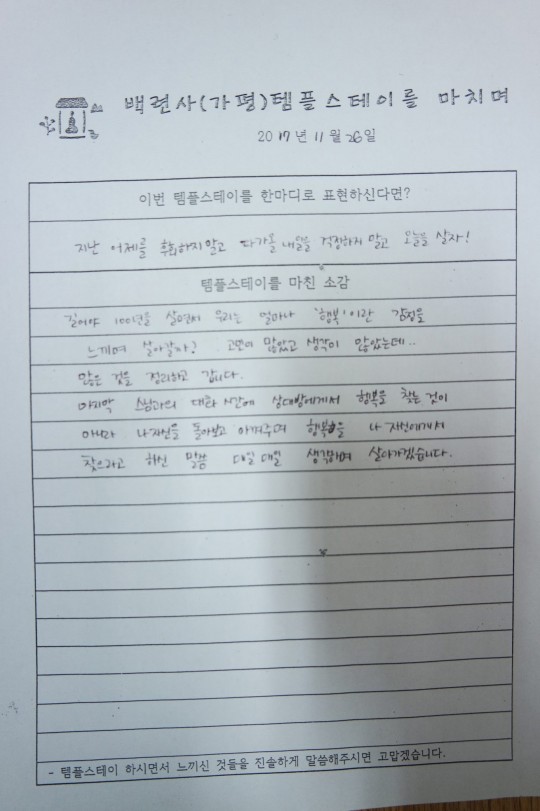 백련사(가평)템플스테이를 마치며
2017년 11월 26일
이번 템플스테이를 한마디로 표현하신다면?
지난 어제를 후회하지말고 다가올 내일을 걱정하지 말고 오늘을 살자!
템플스테이를 마친 소감
길어야 100년을 살면서 우리는 얼마나 '행복'이란 감정을
느끼며 살아갈까? 고민이 많았고 생각이 많았는데..
많은 것을 정리하고 갑니다.
마지막 스님과의 대화 시간에 상대방에게서 행복을 찾는 것이
아니라 나자신을 돌아보고 아껴주며 행복을 나 자신에게서
찾으라고 하신 말씀 매일매일 생각하며 살아가겠습니다.
- 템플스테이 하시면서 느끼신 것들을 진솔하게 말씀해주시면 고맙겠습니다.